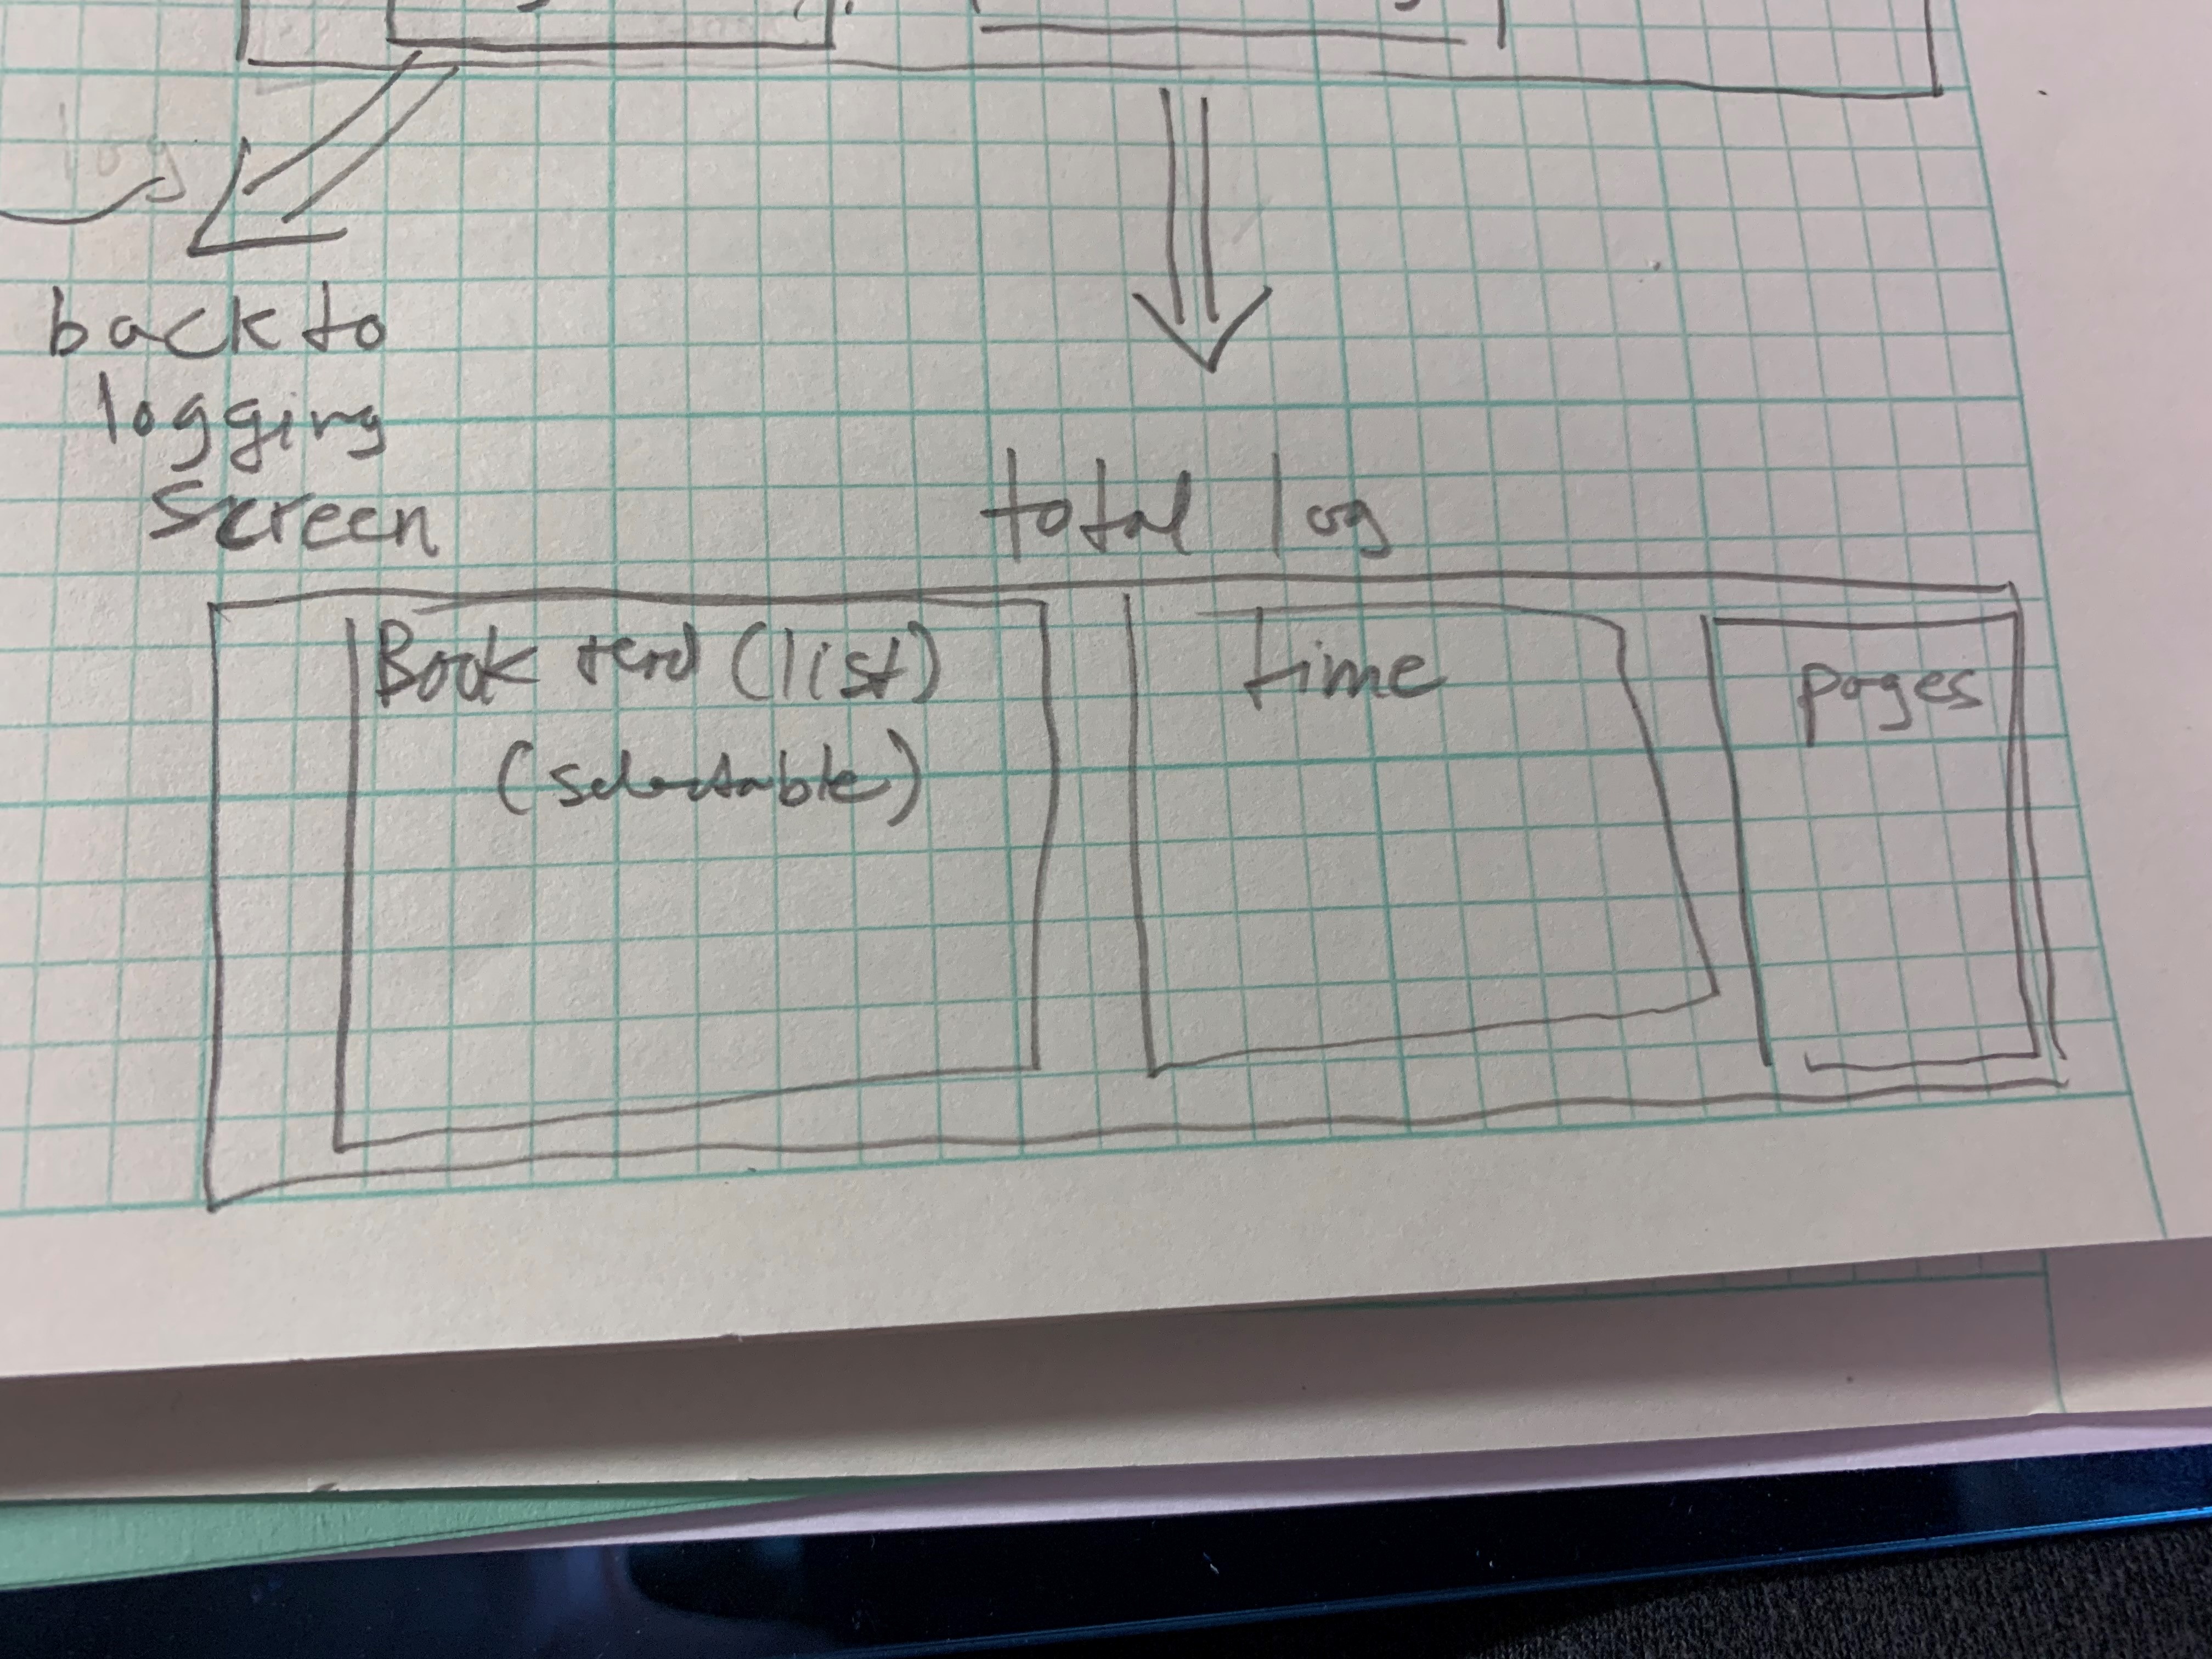 log
back to
logging
screen
total log
Book read (list)
(selectable)
time
pages